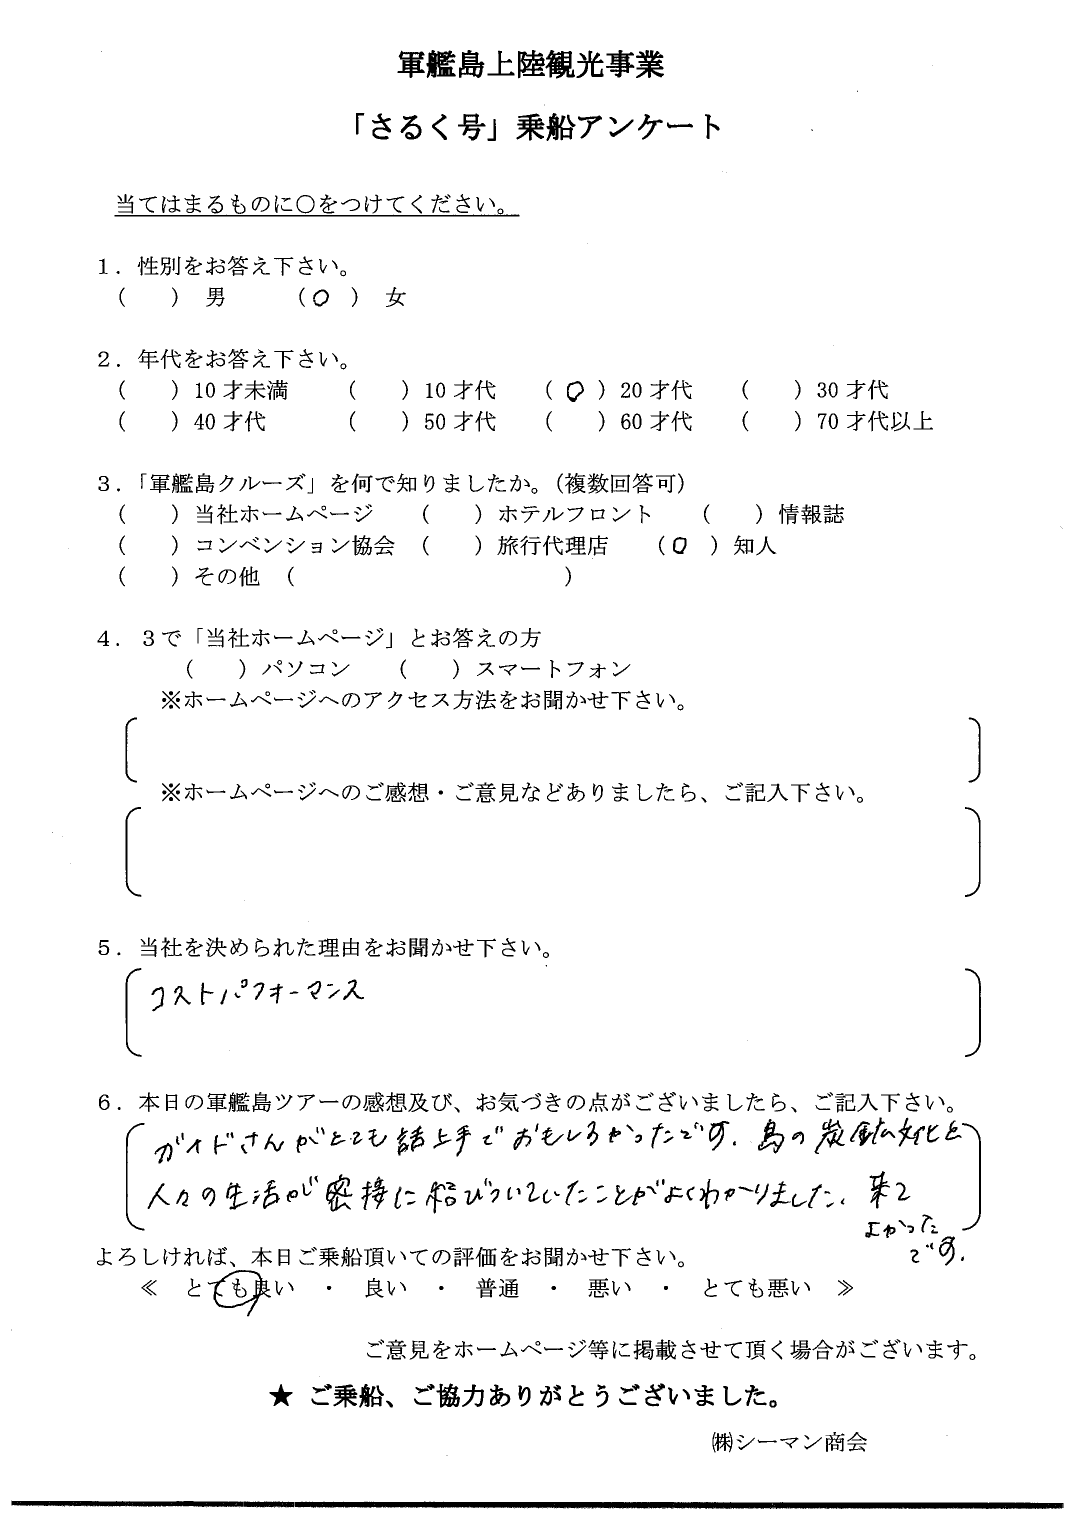 軍艦島上陸観光事業
「さるく号」乗船アンケート
当てはまるものに○をつけてください。
１．性別をお答え下さい。
（　　）男　　（○）女
２．年代をお答え下さい。
（　　）10才未満　　（　　）10才代　　（○）20才代　　（　　）30才代
（　　）40才代　　（　　）50才代　　（　　）60才代　　（　　）70才代以上
３．「軍艦島クルーズ」を何で知りましたか。（複数回答可）
（　　）当社ホームページ　　（　　）ホテルフロント　　（　　）情報誌
（　　）コンベンション協会　（　　）旅行代理店　　（○）知人
（　　）その他　（　　　　　　　　　　　　）
４．３で「当社ホームページ」とお答えの方
（　　）パソコン　　（　　）スマートフォン
※ホームページへのアクセス方法をお聞かせ下さい。
※ホームページへのご感想・ご意見などありましたら、ご記入下さい。
５．当社を決められた理由をお聞かせ下さい。
コストパフォーマンス
６．本日の軍艦島ツアーの感想及び、お気づきの点がございましたら、ご記入下さい。
ガイドさんがとても話上手でおもしろかったです。島の炭鉱文化と
人々の生活が密接に結びついていたことがよくわかりました。来て
よかった
です。
よろしければ、本日ご乗船頂いての評価をお聞かせ下さい。
≪　とても良い　・　良い　・　普通　・　悪い　・　とても悪い　≫
ご意見をホームページ等に掲載させて頂く場合がございます。
★ ご乗船、ご協力ありがとうございました。
㈱シーマン商会